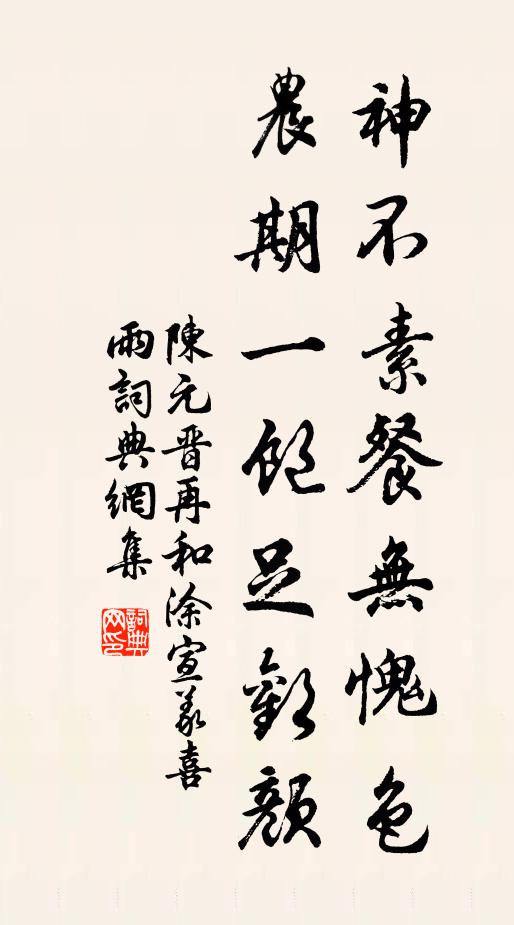 神不素餐無愧色
農期一飽足歡顏
陳元晋再和涂宣義喜
雨詞典網集
詞典
网印